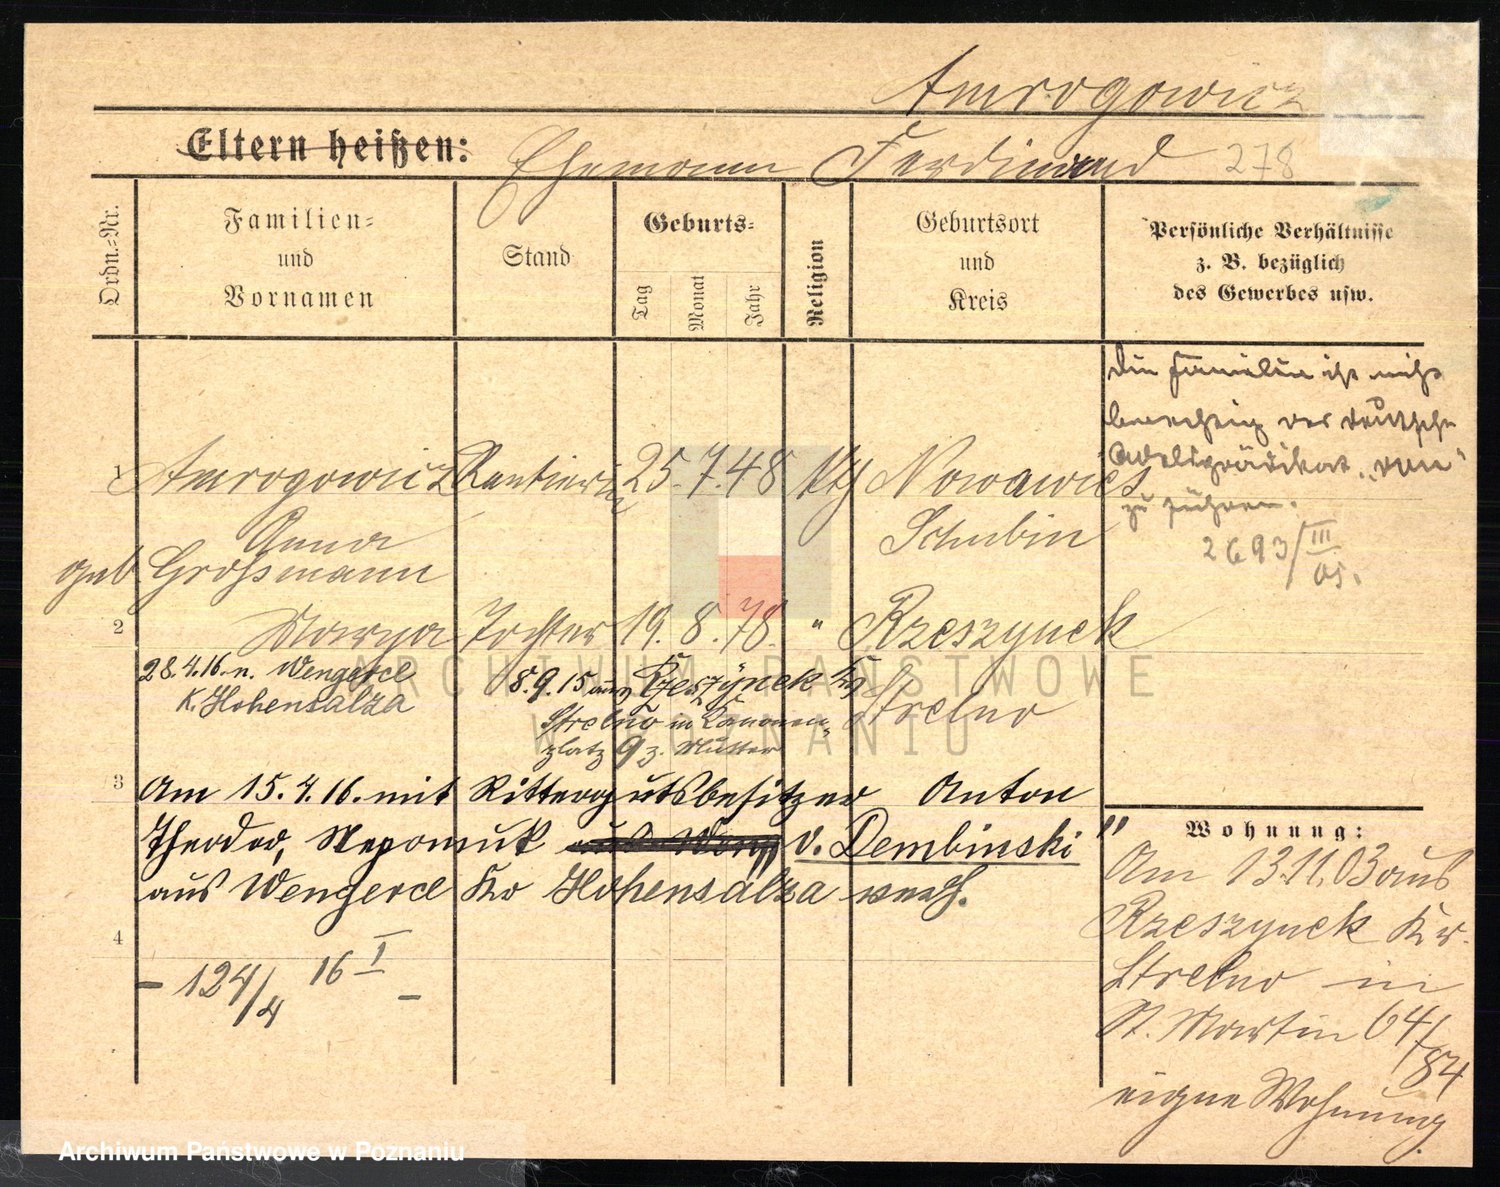 Amrogowicz
Eltern heißen: Ehemann Ferdinand 278
Ordn.-Nr.
Familien-
und
Vornamen
Stand
Geburts-
Tag
Monat
Jahr
Religion
Geburtsort
und
Kreis
Persönliche Verhältnisse
z. B. bezüglich
des Gewerbes usw.
Die Familie ist nicht
berechtigt das deutsche
Adelsprädikat "von"
zu führen.
2693/III
05.
1 Amrogowicz Rentierin 25. 7. 48 kth Nowawies
Anna Schubin
geb Großmann
2 Marya Tochter 19. 8. 78. " Rzeszynek
Strelno
28.4.16. n. Wengerce
K. Hohensalza
8.9.15 aus Rzeszynek Kr
Strelno in Kanonen-
platz 9 z. Mutter
3 Am 15.4.16. mit Rittergutsbesitzer Anton
Theodor, Nepomuk v. Dembinski"
aus Wengerce Kr Hohensalza verh.
4
- 124/4 16 I -
Wohnung:
Am 13.11.03 aus
Rzeszynek Kr.
Strelno in
St. Martin 64/
84
eigne Wohnung.
ARCHIWUM PAŃSTWOWE
W POZNANIU
Archiwum Państwowe w Poznaniu